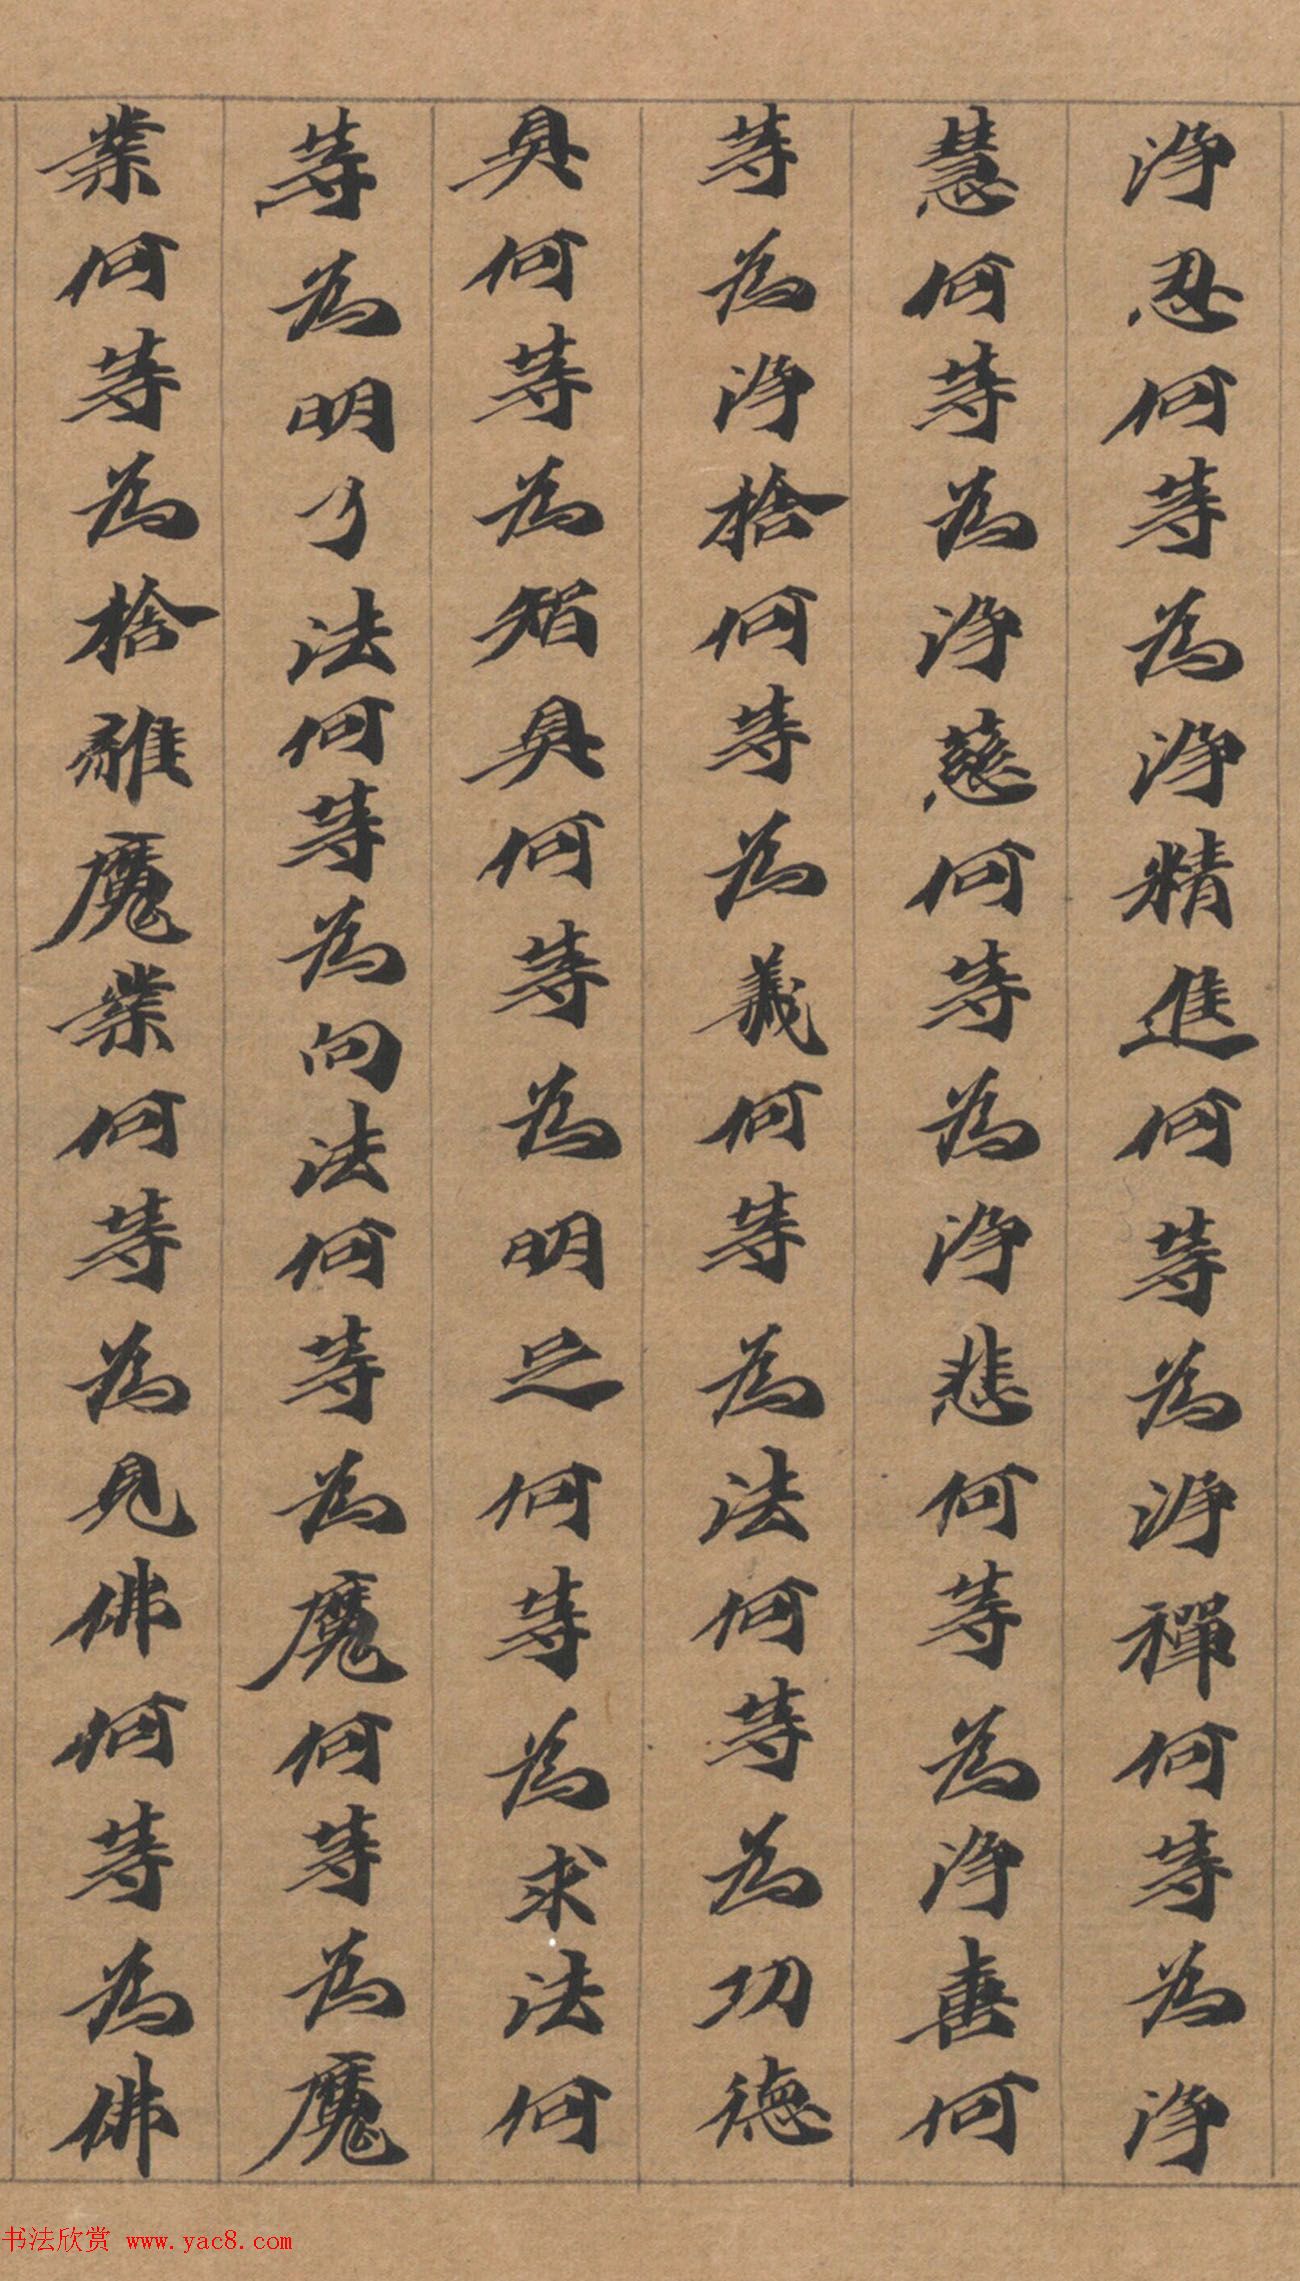 淨忍何等為淨精進何等為淨禪何等為淨
慧何等為淨慈何等為淨悲何等為淨喜何
等為淨捨何等為義何等為法何等為功德
具何等為智具何等為明足何等為求法何
等為明了法何等為向法何等為魔何等為魔
業何等為捨離魔業何等為見佛何等為佛
书法欣赏 www.yac8.com